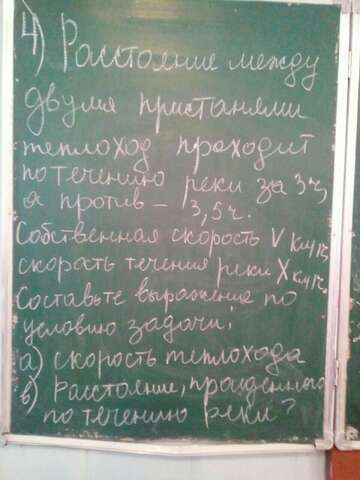 4) Расстояние между
двумя пристанями
теплоход проходит
по течению реки за 3ч,
а против – 3,5ч.
Собственная скорость V км/ч,
скорость течения реки X км/ч.
Составьте выражение по
условию задачи:
а) скорость теплохода
в) расстояние, пройденного
по течению реки?